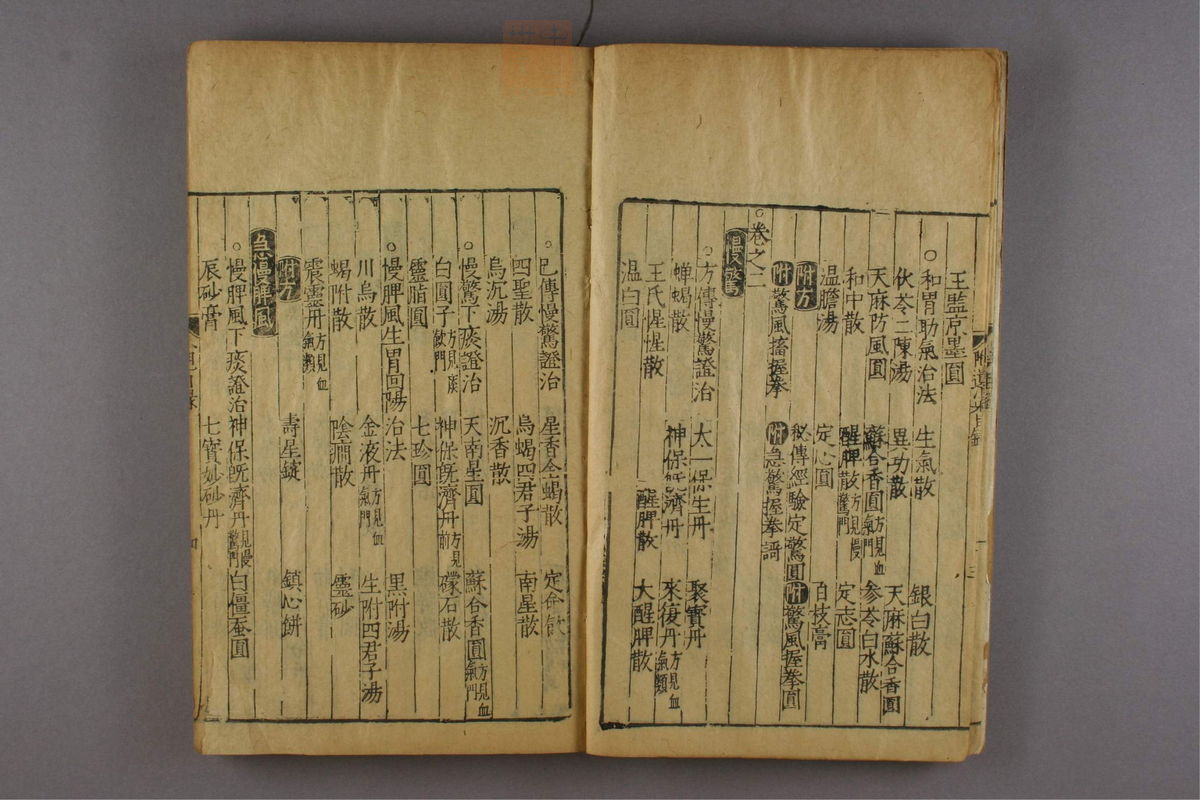 王監京墨圓
○和胃助氣治法 生氣散 銀白散
伏苓二陳湯 異功散 天麻蘇合香圓
天麻防風圓 蘇合香圓方見血氣門 參苓白水散
和中散 醒脾散方見慢驚門 定志圓
温膽湯 定心圓 百枝膏
附方 秘傳經驗定驚圓 附驚風握拳圓
附驚風搐握拳 附急驚握拳謌
○卷之二
慢驚
○方傳慢驚證治 太一保生丹 聚寳丹
蝉蝎散 神保旣濟丹 來復丹方見血氣類
王氏惺惺散 醒脾散 大醒脾散
温白圓
○已傳慢驚證治 星香全蝎散 定命飮
四聖散 烏蝎四君子湯 南星散
烏沉湯 沉香散
○慢驚下痰證治 天南星圓 蘇合香圓方見血氣門
白圓子方見痰飮門 神保旣濟丹方見前 礞石散
靈脂圓 七珍圓
○慢脾風生胃回陽治法 黒附湯
川烏散 金液丹方見血氣門 生附四君子湯
蝎附散 陰癎散 靈砂
震靈丹方見血氣類
附方 壽星錠 鎮心餅
急慢脾風
○慢脾風下痰證治 神保旣濟丹見慢驚門 白僵蚕圓
辰砂膏 七寳妙砂丹